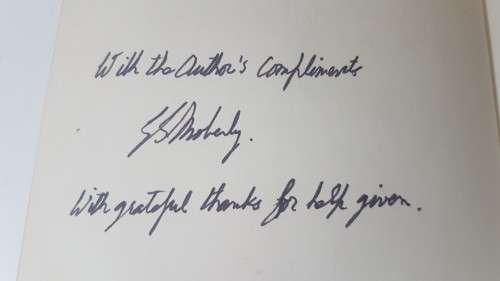 With the Author's Compliments
Moberly.
With grateful thanks for help given.